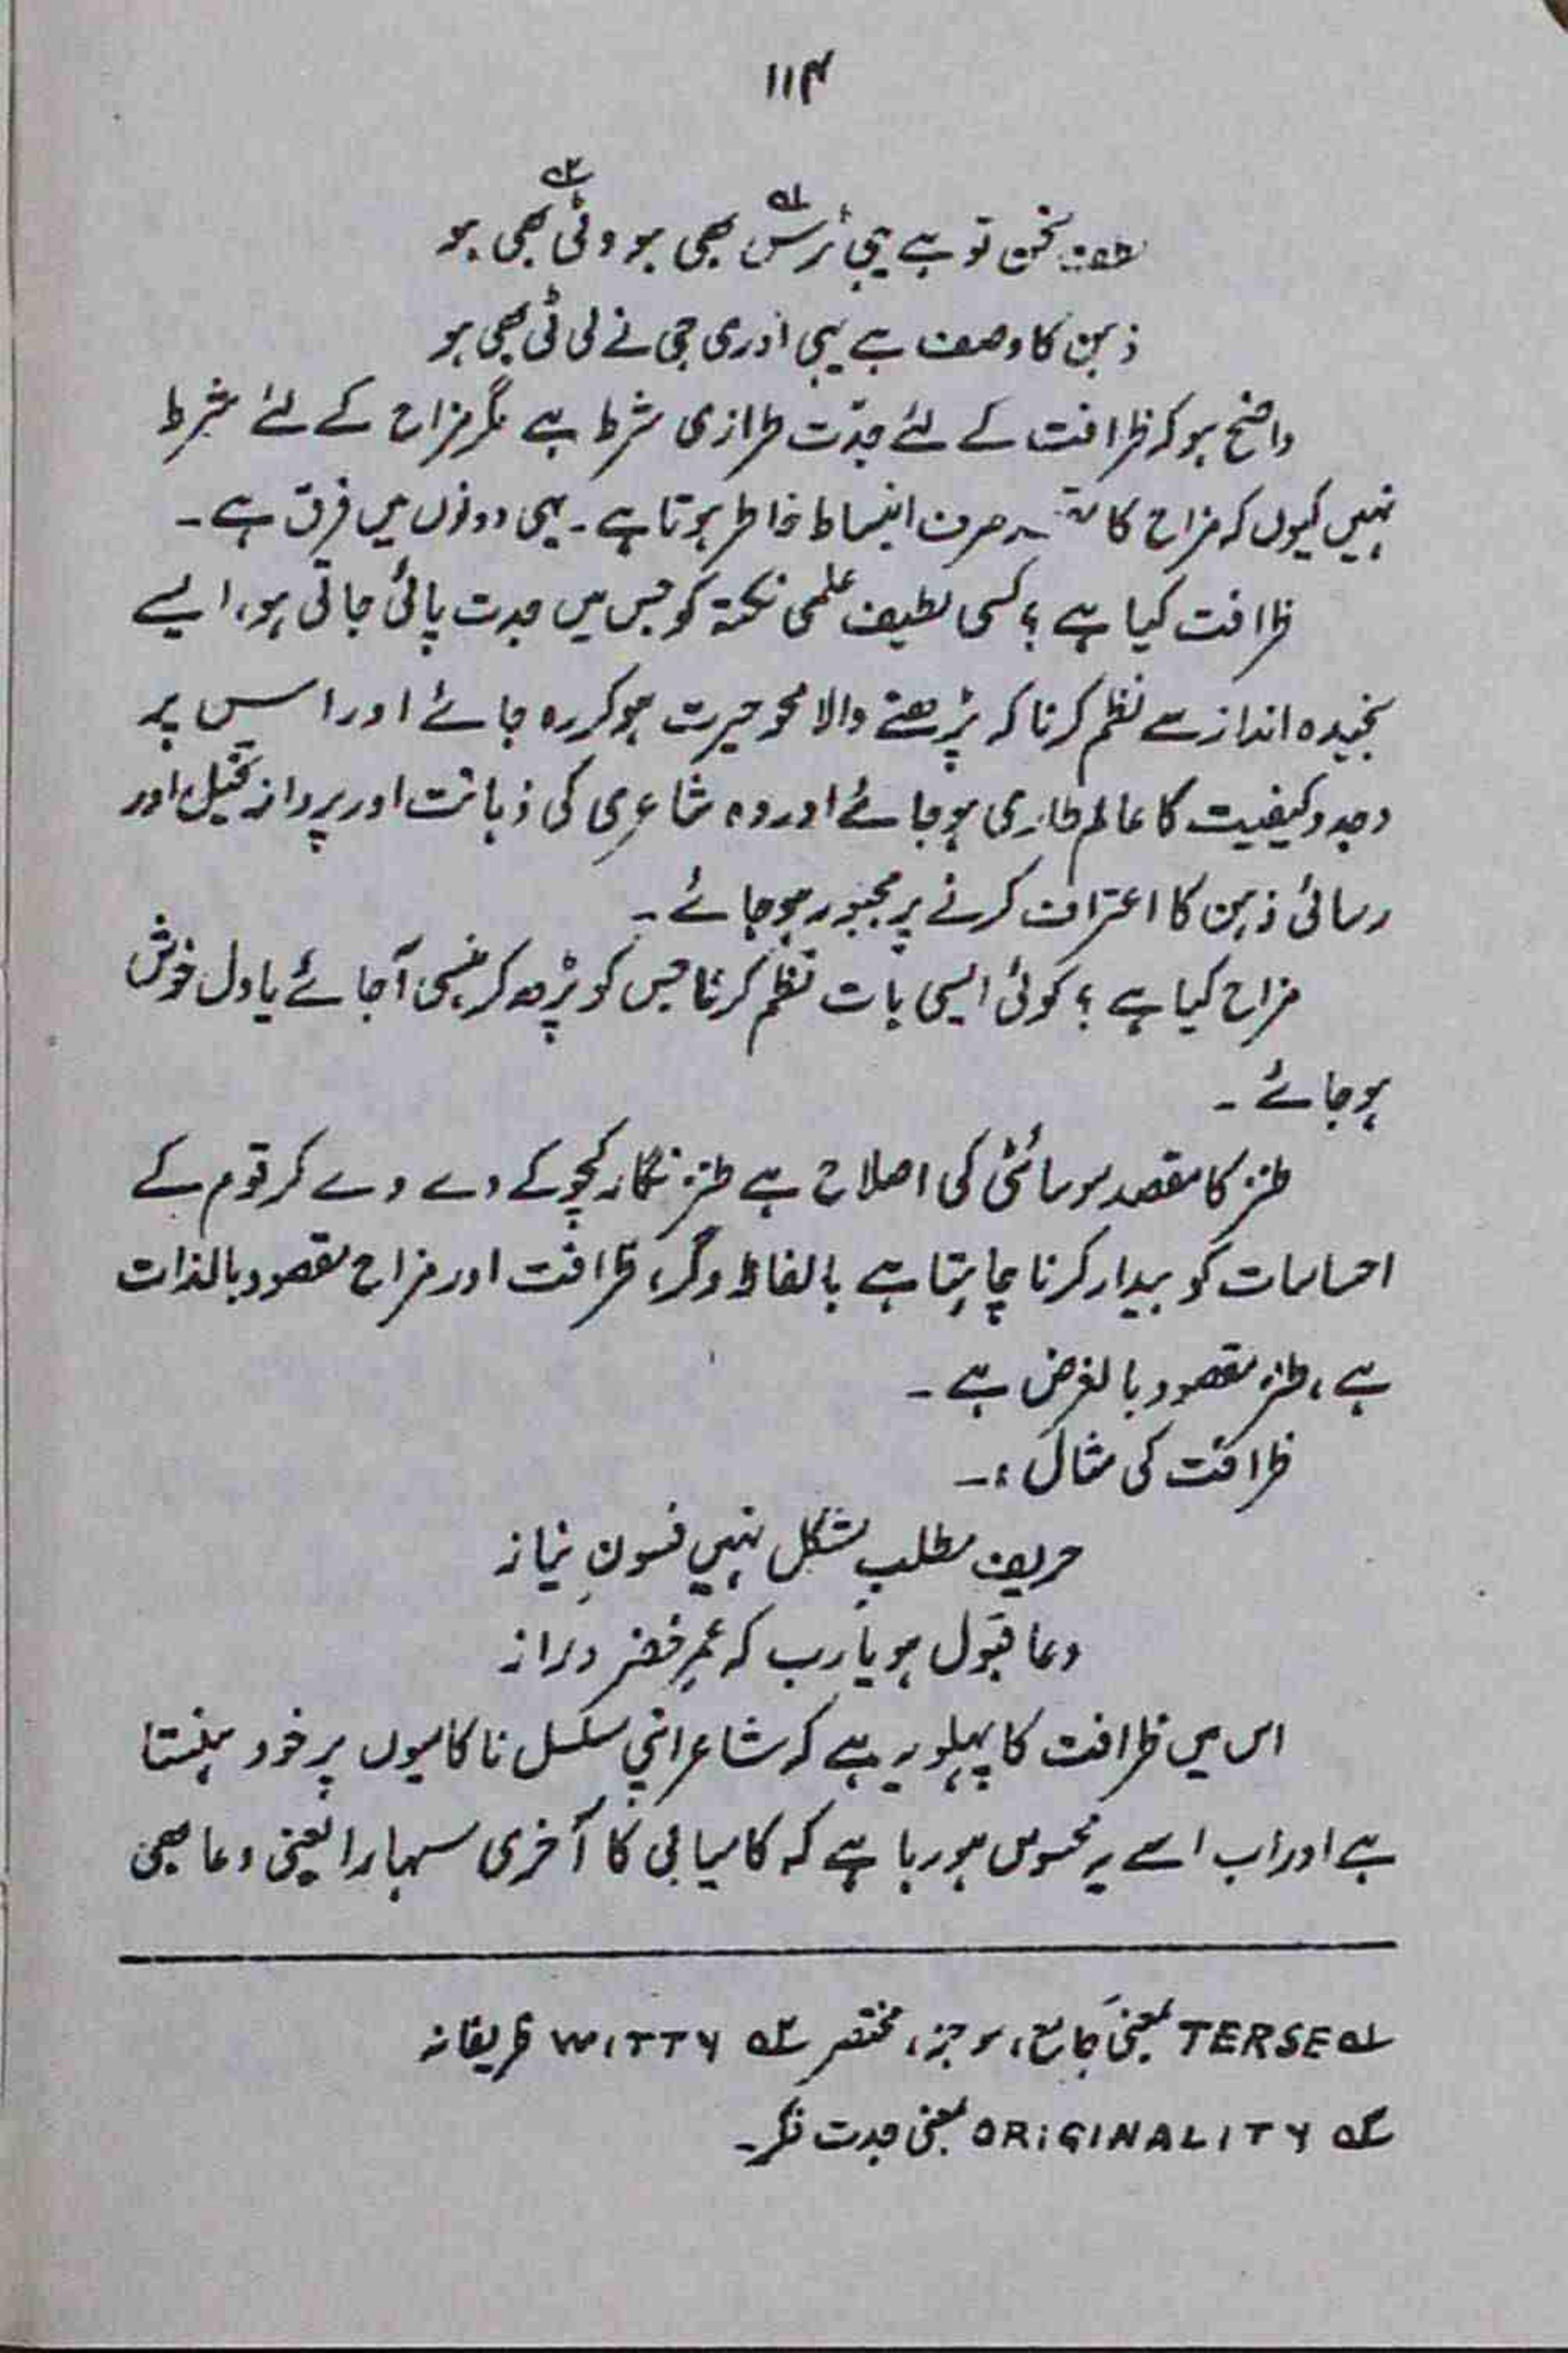 ۱۱۴
لطف سخن تو ہے یہی ٹرس لہ بھی ہو وٹی ۲ہ بھی ہو
ذہن کا وصف ہے یہی اَدری جی نے لی ٹی بھی ہو
واضح ہو کہ ظرافت کے لئے جدّت طرازی شرط ہے مگر مزاح کے لئے شرط
نہیں کیوں کہ مزاح کا صرف انبساط خاطر ہوتا ہے۔ یہی دونوں میں فرق ہے۔
ظرافت کیا ہے ؟ کسی لطیف علمی نکتہ کو جس میں جدت پائی جاتی ہو، ایسے
سنجیدہ انداز سے نظم کرنا کہ پڑھنے والا محو حیرت ہو کر رہ جائے اور اس پر
وجد و کیفیت کا عالم طاری ہو جائے اور وہ شاعری کی ذہانت اور پرواز تخیل، اور
رسائی ذہن کا اعتراف کرنے پر مجبور ہو جائے۔
مزاح کیا ہے ؟ کوئی ایسی بات نظم کرنا جس کو پڑھ کر ہنسی آ جائے یا دل خوش
ہو جائے ۔
طنز کا مقصد سوسائٹی کی اصلاح ہے طنز نگار کچوکے دے دے کر قوم کے
احساسات کو بیدار کرنا چاہتا ہے بالفاظ دگر، ظرافت اور مزاح مقصود بالذات
ہے ، طنز مقصود بالغرض ہے ۔
ظرافت کی مثال :۔
حریف مطلب مشکل نہیں فسونِ نیاز
دعا قبول ہو یا رب کہ عمرِ خضر دراز
اس میں ظرافت کا پہلو یہ ہے کہ شاعر اپنی مسلسل ناکامیوں پر خود ہنستا
ہے اور اب اسے یہ محسوس ہو رہا ہے کہ کامیابی کا آخری سہارا یعنی دعا بھی
لہ TERSE بمعنی جامع، موجز، مختصر ۲ہ WITTY ظریفانہ
۳ہ ORIGINALITY بمعنی جدت فکر۔